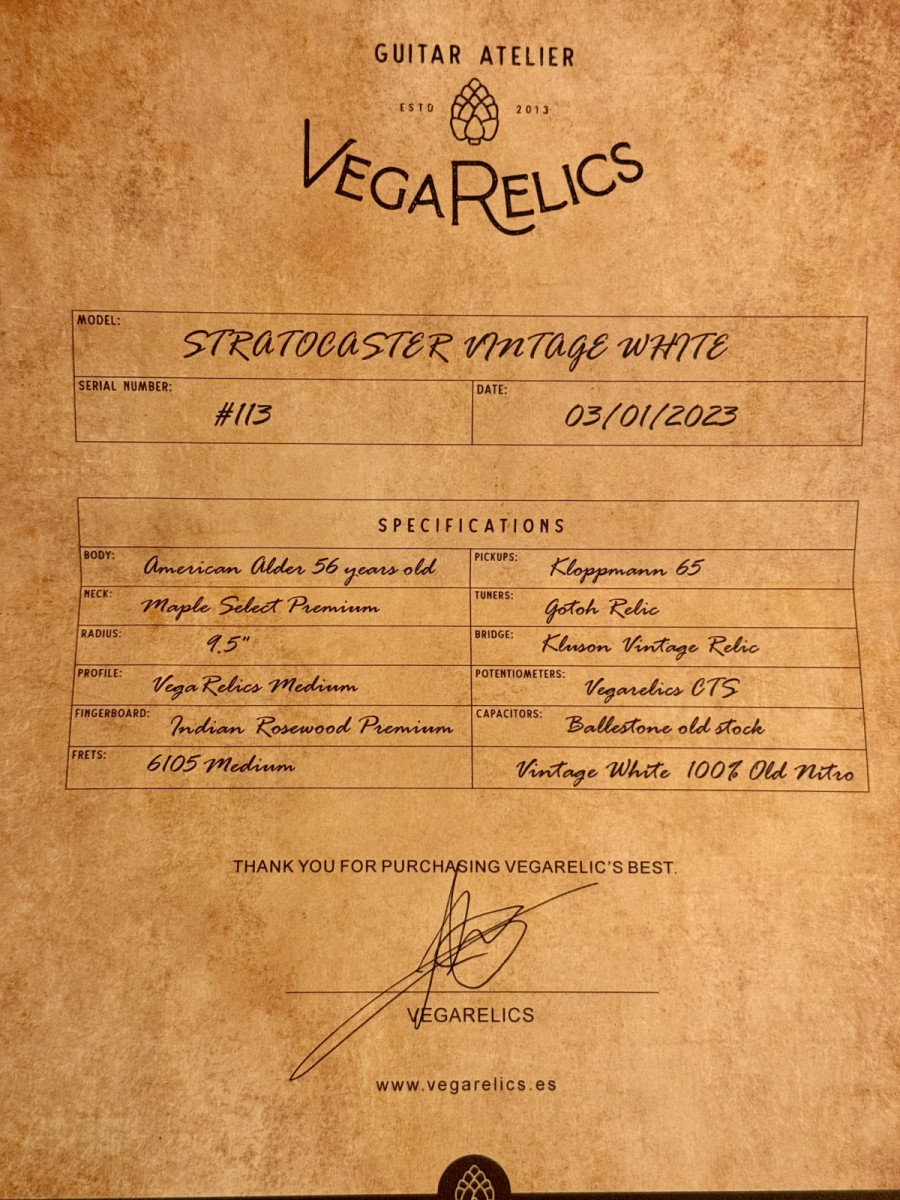 GUITAR ATELIER
ESTD 2013
VEGARELICS
MODEL:
STRATOCASTER VINTAGE WHITE
SERIAL NUMBER: DATE:
#113 03/01/2023
SPECIFICATIONS
BODY: American Alder 56 years old PICKUPS: Kloppmann 65
NECK: Maple Select Premium TUNERS: Gotoh Relic
RADIUS: 9.5" BRIDGE: Kluson Vintage Relic
PROFILE: VegaRelics Medium POTENTIOMETERS: Vegarelics CTS
FINGERBOARD: Indian Rosewood Premium CAPACITORS: Ballestone old stock
FRETS: 6105 Medium Vintage White 100% Old Nitro
THANK YOU FOR PURCHASING VEGARELIC'S BEST.
VEGARELICS
www.vegarelics.es